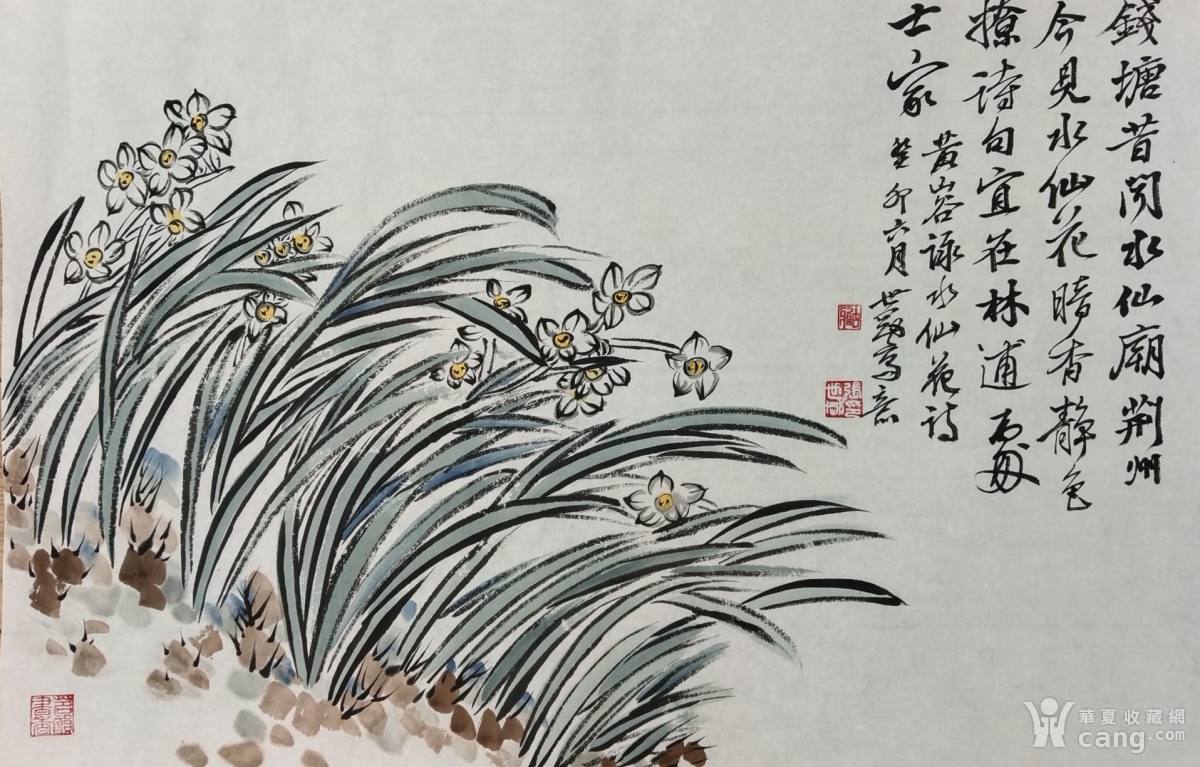 錢塘昔闻水仙廟荆州
今見水仙花暗香静色
撩诗句宜在林逋處
士家
黄山谷詠水仙花诗
癸卯六月 世写意
華夏收藏網
cang.com